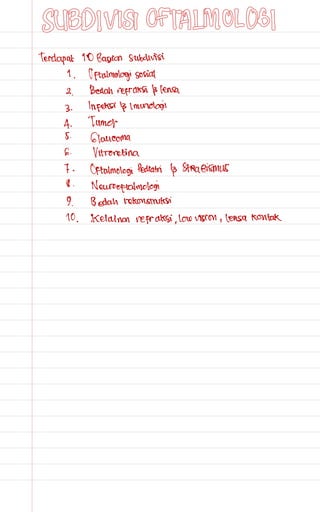 SUBDIVISI OFTALMOLOGI
Terdapat 10 Bagian Subdivisi
1. Oftalmologi sosial
2. Bedah refraksi & lensa
3. Infeksi & Imunologi
4. Tumor
5. Glaucoma
6. Vitreoretina
7. Oftalmologi Pediatri & Strabismus
8. Neurooftalmologi
9. Bedah rekonstruksi
10. Kelainan refraksi, low vision, lensa kontak